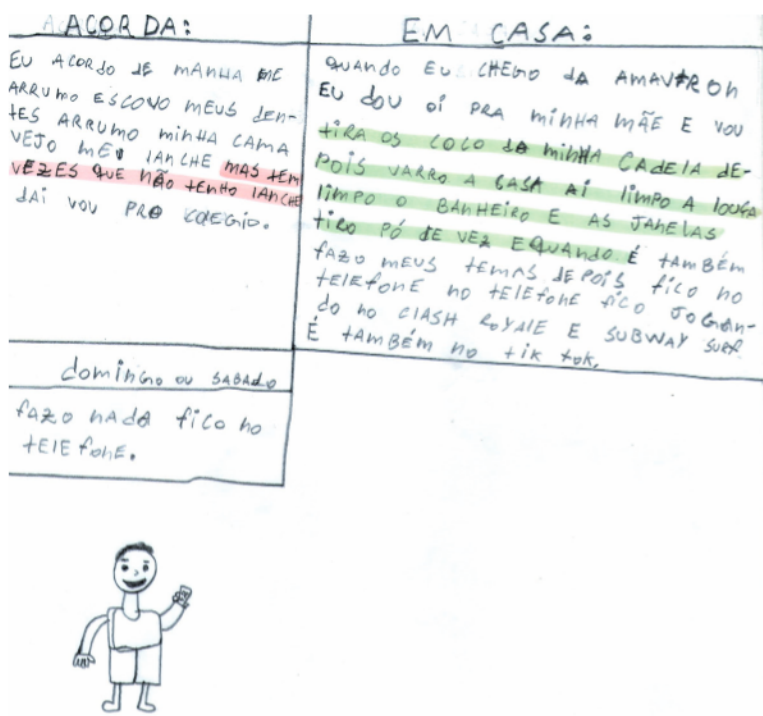 ACORDA:
EU ACORDO DE MANHA ME
ARRUMO ESCOVO MEUS DEN-
TES ARRUMO MINHA CAMA
VEJO MEU LANCHE MAS TEM
VEZES QUE NÃO TENHO LANCHE
DAI VOU PRO COLEGIO.
EM CASA:
QUANDO EU CHEGO DA
EU DOU OI PRA MINHA MÃE E VOU
TIRA OS COCO DA MINHA CADELA DE-
POIS VARRO A CASA AI LIMPO A LOUÇA
LIMPO O BANHEIRO E AS JANELAS
TIRO PÓ DE VEZ EQUANDO. É TAMBÉM
FAZO MEUS TEMAS DEPOIS FICO NO
TELEFONE NO TELEFONE FICO JOGAN-
DO NO CLASH ROYALE E SUBWAY SURF
É TAMBÉM NO TIK TOK.
DOMINGO OU SABADO
FAZO NADA FICO NO
TELEFONE.